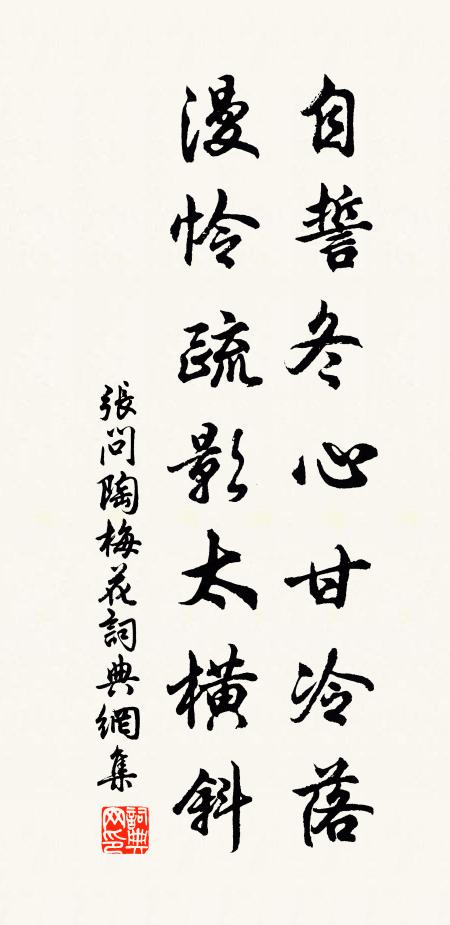 自誓冬心甘冷落
漫怜疏影太橫斜
張問陶梅花詞典網集
詞典网印